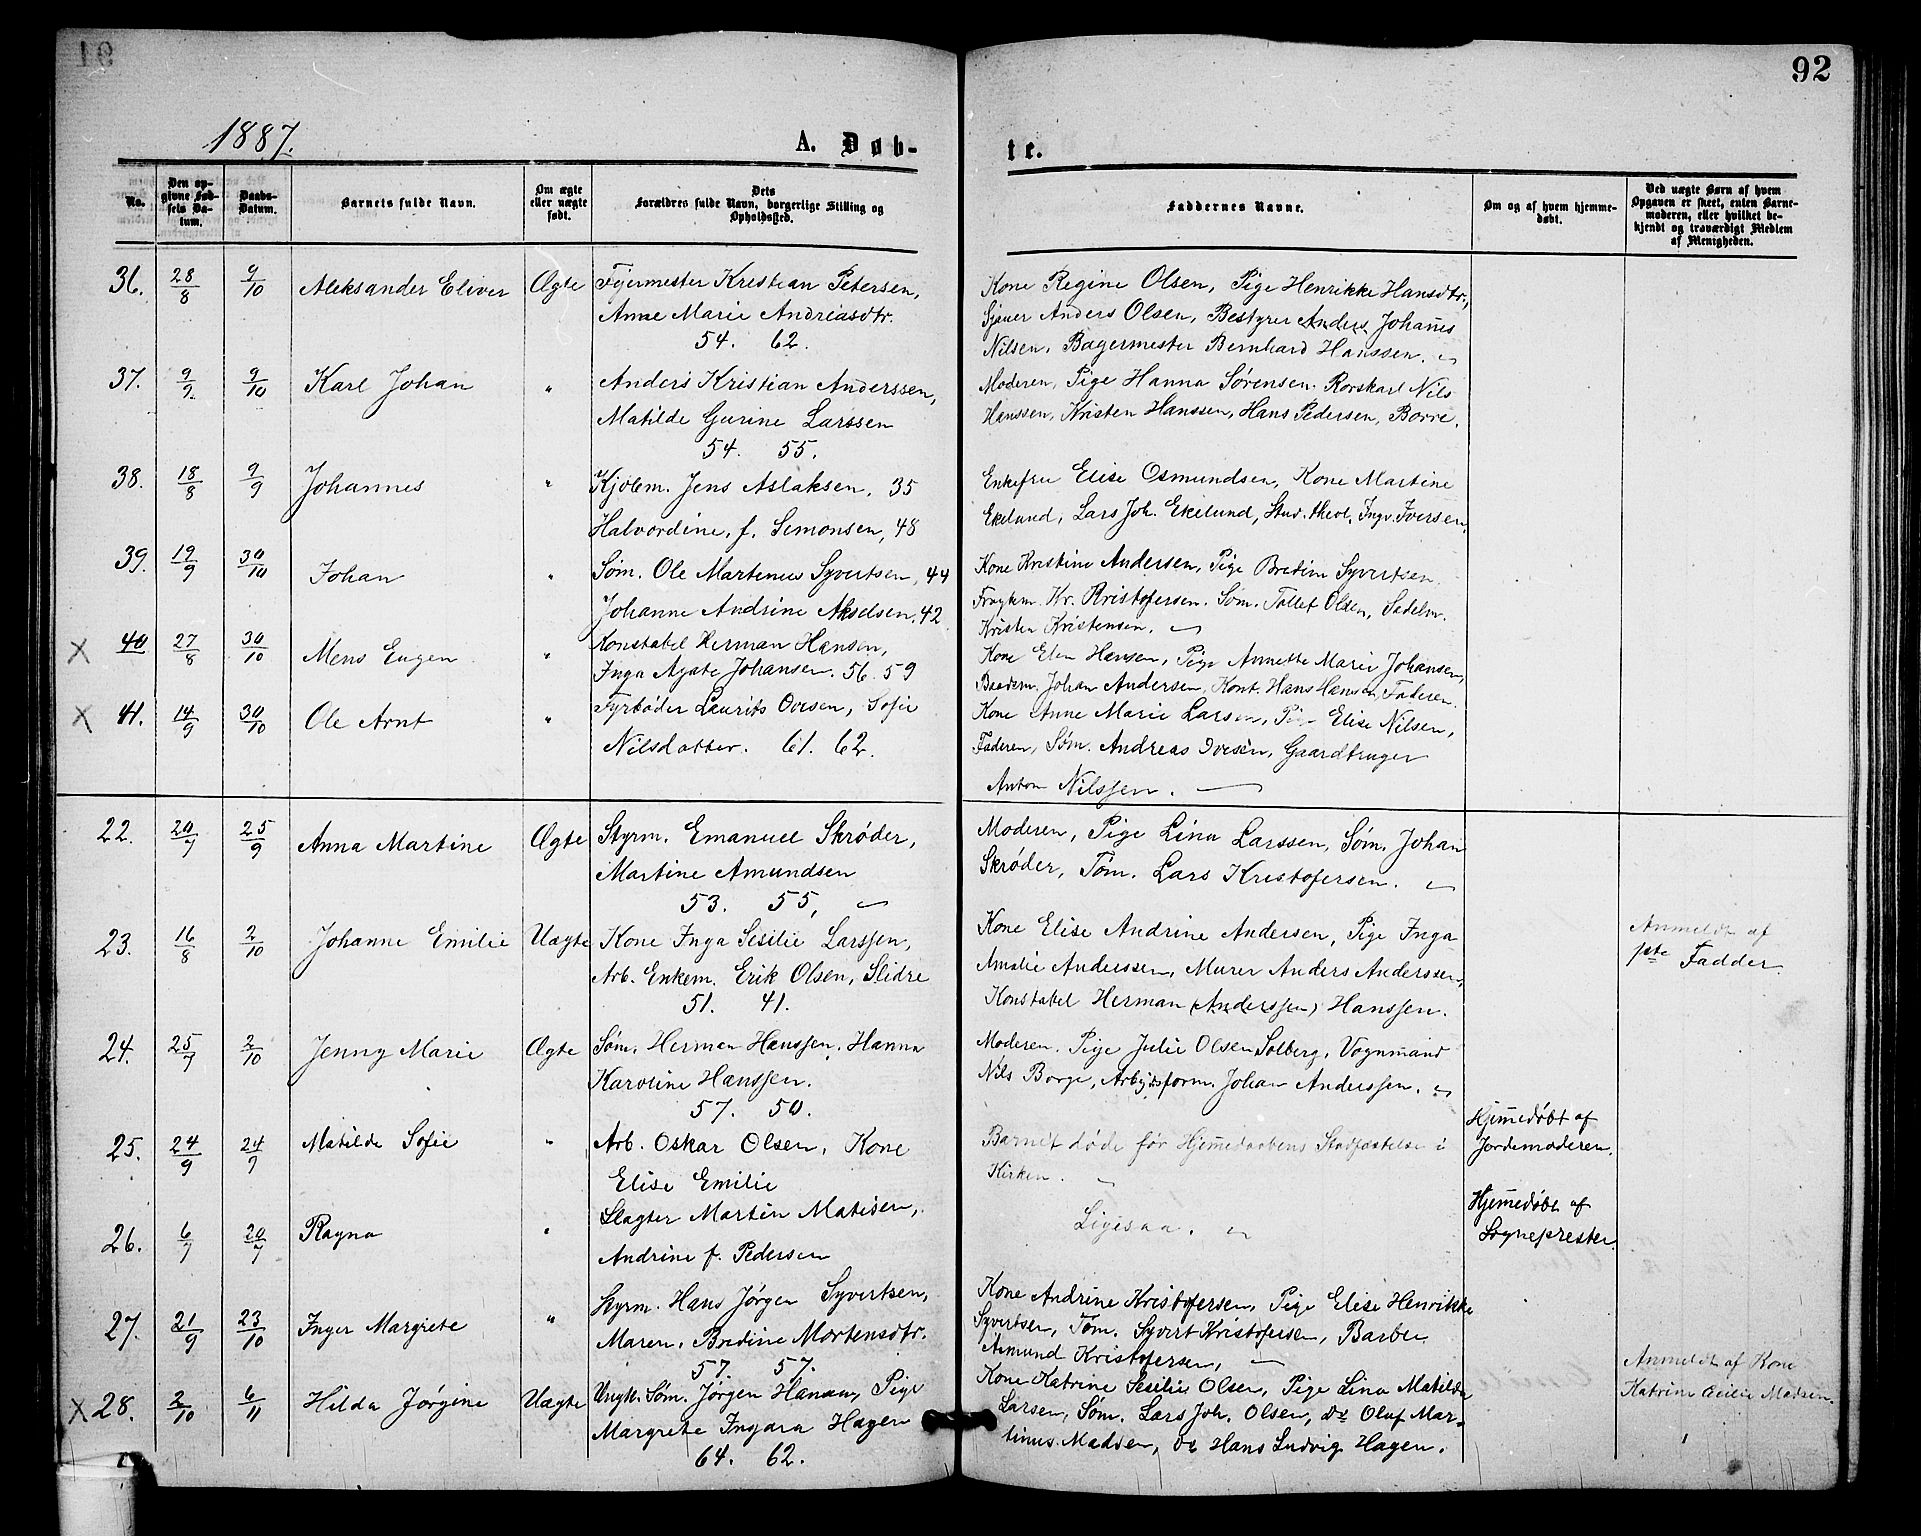 91
92
1887.
A. Døb-
te.
No.
Den op-
givne Fød-
sels Da-
tum.
Daabs-
Datum.
Barnets fulde Navn.
Om ægte
eller uægte
født.
Dets
Forældres fulde Navn, borgerlige Stilling og
Opholdssted.
Faddernes Navne.
Om og af hvem hjemme-
døbt.
Ved uægte Børn af hvem
Opgaven er skeet, enten Barne-
moderen, eller hvilket be-
kjendt og troværdigt Medlem
af Menigheden.
36. 28/8 9/10 Aleksander Eliver Ægte Fyermester Kristian Petersen,
Anne Marie Andreasdtr.
54. 62.
Kone Regine Olsen, Pige Henrikke Hansdtr.,
Sjauer Anders Olsen, Bestyrer Anders Johannes
Nilsen, Bagermester Bernhard Hanssen.
37. 9/9 9/10 Karl Johan " Anders Kristian Anderssen,
Matilde Gurine Larssen
54. 55.
Moderen, Pige Hanna Sørensen. Rorskarl Nils
Hanssen, Kristen Hanssen, Hans Pedersen, Borre.
38. 18/8 9/9 Johannes " Kjøbm. Jens Aslaksen, 35
Halvordine, f. Simonsen, 48
Enkefru Elise Osmundsen, Kone Martine
Ekelund, Lars Joh. Ekelund, Stud. theol. Ingv. Iversen,
39. 19/9 30/10 Johan " Søm. Ole Martenius Syvertsen, 44
Johanne Andrine Akselsen, 42
Kone Kristine Andersen, Pige Bredine Syvertsen
Kr. Kristofersen. Søm. Tollef Olsen, Sadelm.
Kristen Kristensen.
X 40 27/8 30/10 Mens Eugen " Konstabel Herman Hansen,
Inga Agate Johansen. 56. 59
Kone Elen Hansen, Pige Annette Marie Johansen,
Baadsm. Johan Andersen, Konst. Hans Hansen, Faderen.
X 41. 14/9 30/10 Ole Arnt " Fyrbøder Laurits Oversen, Sofie
Nilsdatter. 61. 62.
Kone Anne Marie Larsen, Pige Elise Nilsen,
Faderen, Søm. Andreas Iversen, Gaardbruger
Anton Nilssen.
22. 20/7 25/9 Anna Martine Ægte Styrm. Emanuel Skrøder,
Martine Amundsen
53. 55,
Moderen, Pige Lina Larssen, Søm. Johan
Skrøder, Tøm. Lars Kristofersen.
23. 16/8 2/10 Johanne Emilie Uægte Kone Inga Sesilie Larssen,
Arb. Enkem. Erik Olsen, Slidre
51. 41.
Kone Elise Andrine Andersen, Pige Inga
Amalie Anderssen, Murer Anders Anderssen,
Konstabel Herman (Anderssen) Hanssen.
Anmeldt af
1ste Fadder.
24. 25/7 2/10 Jenny Marie Ægte Søm. Herman Hanssen, Hanna
Karoline Hanssen.
57. 50.
Moderen. Pige Julie Olsen Solberg, Vognmand
Nils Borge, Arbejdsform. Johan Anderssen.
25. 24/9 24/9 Matilde Sofie " Arb. Oskar Olsen, Kone
Elise Emilie
Barnet døde før Hjemmedaabens Stadfæstelse i
Kirken.
Hjemmedøbt af
Jordemoderen.
26. 6/7 20/7 Ragna " Slagter Martin Matisen,
Andrine f. Pedersen
Ligesaa.
Hjemmedøbt af
Sognepresten.
27. 21/9 23/10 Inger Margrete " Styrm. Hans Jørgen Syvertsen,
Maren, Bredine Mortensdtr.
57. 57.
Kone Andrine Kristofersen, Pige Elise Henrikke
Syvertsen, Tøm. Syvert Kristofersen, Barber
Amund Kristofersen,
X 28. 2/10 6/11 Hilda Jørgine Uægte Ungk. Søm. Jørgen Hansen, Pige
Margrete Ingara Hagen
64. 62.
Kone Katrine Sesilie Olsen, Pige Lina Matilda
Larsen, Søm. Lars Joh. Olsen, do Oluf Mar-
tinus Madsen, do Hans Ludvig Hagen.
Anmeldt af Kone
Katrine Cecilie Madsen.